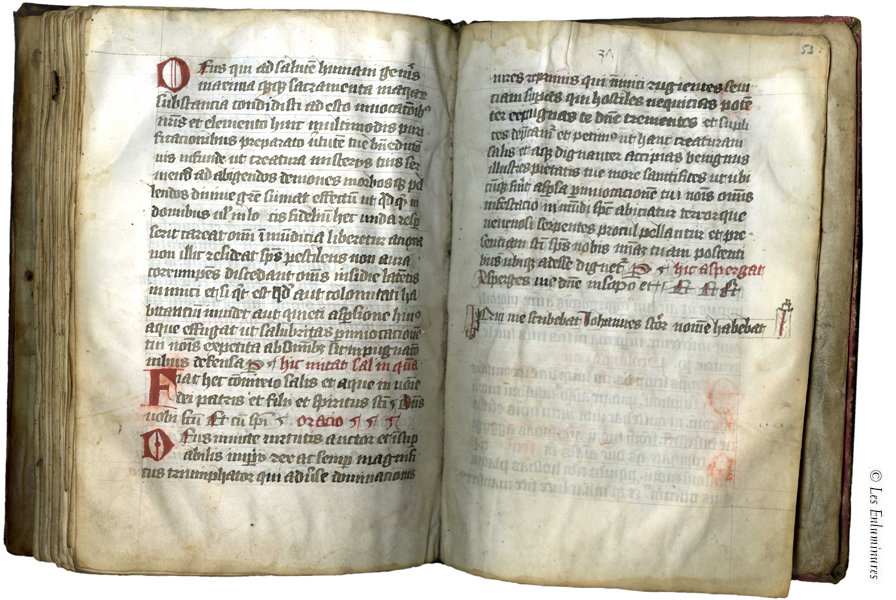 Deus qui ad salutē humani genīs
maxima q̄q̨ sacramenta in aquaꝝ
substantia condidisti ad esto inuocatoībꝫ
nr̄is et elemento huic multimodis puri
ficationibus preparato v̄tutē tue bn̄edicti
nis infunde ut creatura misteriis tuis ser
uiens ad abigendos demones morbosqꝫ pel
lendos diuine gr̄e sumat effectū ut qd̄q̇ in
domibus ul̄ in lo cis fideliū hec unda resp̄
serit careat om̄i īmūdicia liberetur a noxa
non illic resideat sp̄s pestilens non aura
corrumpēs discedant om̄s insidie latētis
inimici et si qd̄ est qd̄ aut colomitati ha
bitanciū inuidet aut quieti asp̄sione huiꝰ
aque effugiat ut salubritas p inuocationē
tui nois expetita ab om̄ibꝫ sit impugnatō
nibus defensa P hic mittat sal in quā
Fiat hec cōmixtio salis et aque in noīe
dei patris et filii et spiritus sc̄i Dn̄s
uobisctū Et cū sp̄u oracio
Deus inuicte uirtutis auctor et īsup
abilis imperii rex ac semp magnifi
cus triumphator qui aduerse dominationis
31
53
uires reprimis qui inimici rugientes seui
ciam supas qui hostiles nequicias potē
ter expugnas te dn̄e trementes et supli
tes dep̄cam̄ et petimꝰ ut hanc creaturam
salis et aq̄ dignanter accipias benignus
illustres pietatis tue more sanctifices ut ubi
cūqꝫ fuit asp̄sa p inuocationē tui nois om̄is
infestacio inmūdi sp̄c abiciatur terrorque
uenenosi serpentes procul pellantur et pre
senciam sc̄i sp̄s nobis miam̄ tuam poscenti
bus ubiqꝫ adesse dignet̄ P hic aspergat
Asperges me dn̄e insopo et
me scribebat Iohannes nomē habebat
© Les Enluminures